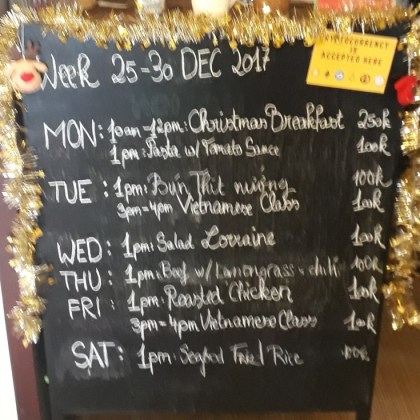 CRYPTOCURRENCY IS ACCEPTED HERE
Week 25-30 DEC 2017
MON: 10am-12pm: Christmas Breakfast 250k
1pm: Pasta w/ Tomato Sauce 100k
TUE: 1pm: Bún Thịt nướng 100k
3pm-4pm Vietnamese Class 100k
WED: 1pm: Salad Lorraine 100k
THU: 1pm: Beef w/ Lemongrass & chili 100k
FRI: 1pm: Roasted Chicken 100k
3pm-4pm Vietnamese Class 100k
SAT: 1pm: Seafood Fried Rice 100k